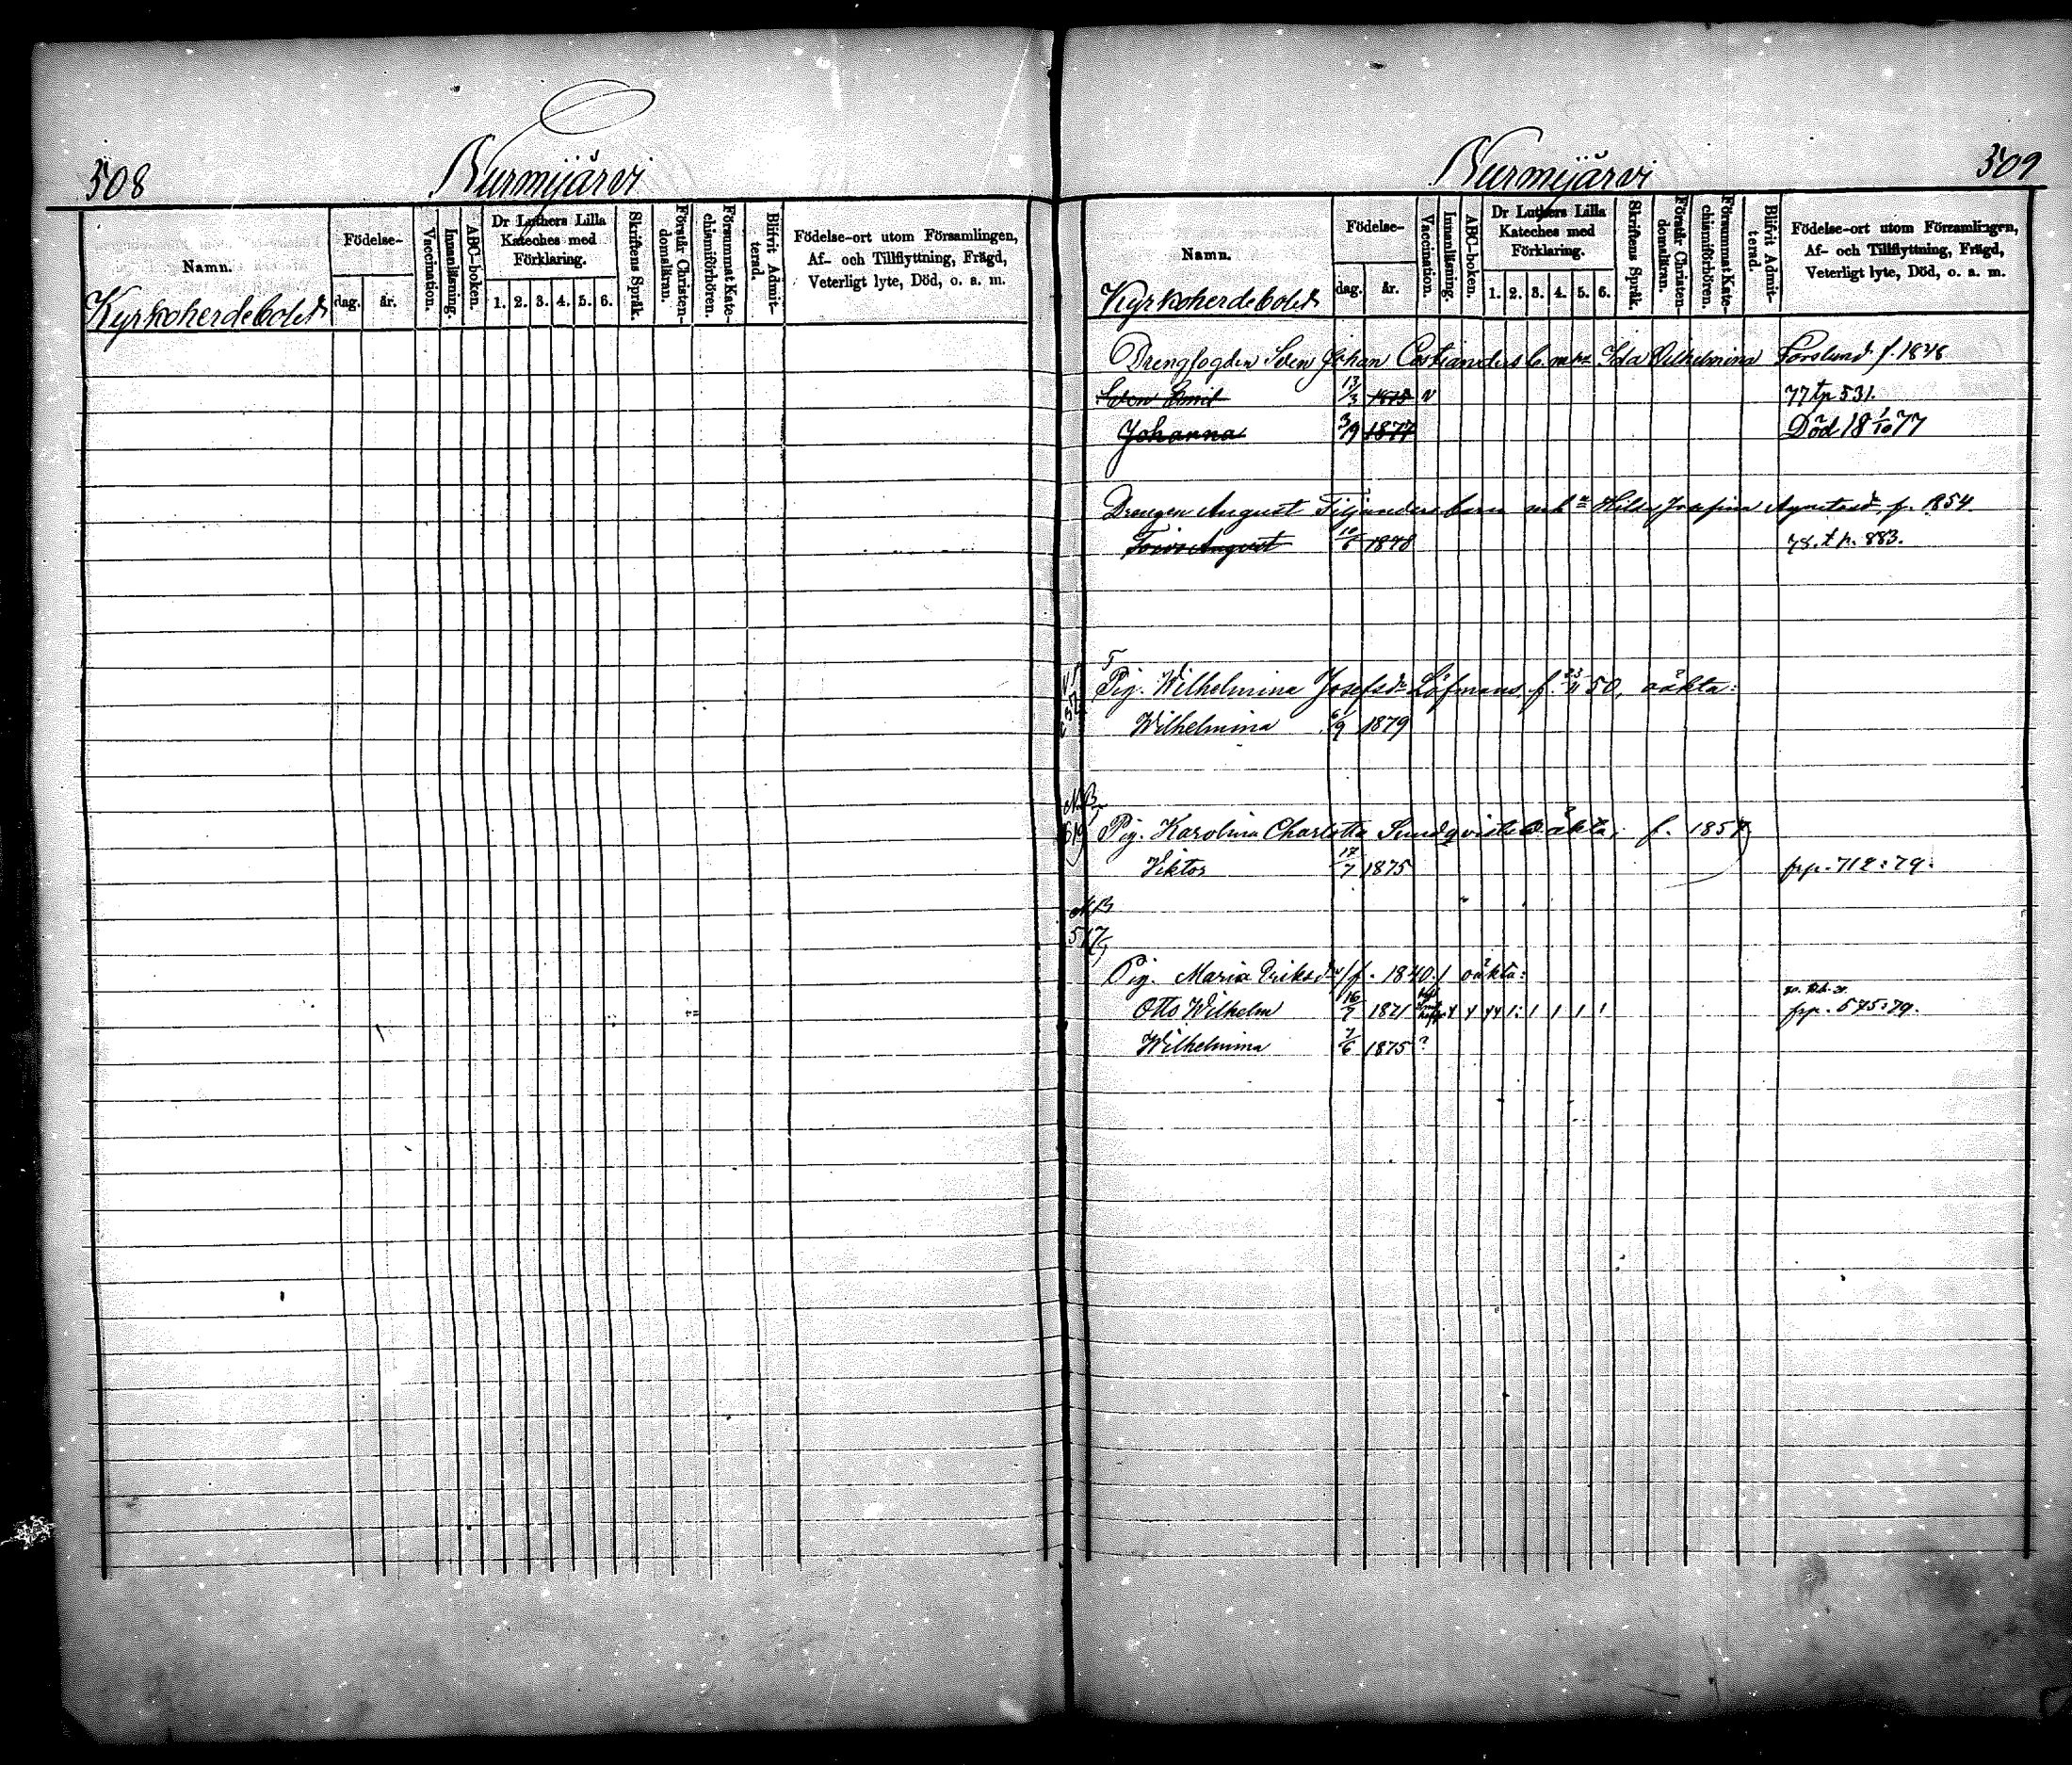 508
Nurmijärvi
Namn.
Födelse-
dag.
år.
Vaccination.
Innanläsning.
ABC-boken.
Dr Luthers Lilla
Kateches med
Förklaring.
1. 2. 3. 4. 5. 6.
Skriftens Språk.
Förstår Christen-
domsläran.
Försummat Kate-
chismiförhören.
Blifvit Admit-
terad.
Födelse-ort utom Församlingen,
Af- och Tillflyttning, Frägd,
Veterligt lyte, Död, o. a. m.
Kyrkoherdebolet
Nurmijärvi
509
Namn.
Födelse-
dag.
år.
Vaccination.
Innanläsning.
ABC-boken.
Dr Luthers Lilla
Kateches med
Förklaring.
1. 2. 3. 4. 5. 6.
Skriftens Språk.
Förstår Christen-
domsläran.
Försummat Kate-
chismiförhören.
Blifvit Admit-
terad.
Födelse-ort utom Församlingen,
Af- och Tillflyttning, Frägd,
Veterligt lyte, Död, o. a. m.
Kyrkoherdebolet
Drengfogden Sven Johan Castianders b. Ida Vilhelmina Forslund f. 1848
Sven Emil 13/3 1875 v 77 tp 531.
Johanna 3/9 1877 Död 18 1/10 77
Drengen August Filjanders barn Hilda Josefina f. 1854
Toivo August 10/6 1878 78. t p. 883.
Pig. Wilhelmina Josefsdr Löfmans f. 23/11 50, oäkta:
Wilhelmina 6/9 1879
NB
619
Pig. Karolina Charlotta Sundqvists oäkta: f. 1857
Viktor 17/7 1875 frp. 712:79.
NB
517
Pig. Maria Eriksdrs /f. 1840./ oäkta:
Otto Wilhelm 16/7 1871 frp. 575:79.
Wilhelmina 7/6 1875 ?